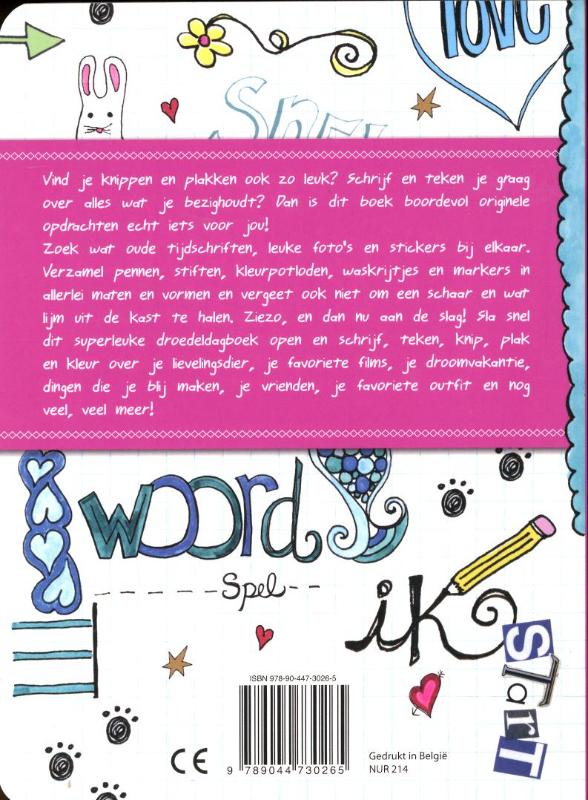 love
Snel
Vind je knippen en plakken ook zo leuk? Schrijf en teken je graag
over alles wat je bezighoudt? Dan is dit boek boordevol originele
opdrachten echt iets voor jou!
Zoek wat oude tijdschriften, leuke foto's en stickers bij elkaar.
Verzamel pennen, stiften, kleurpotloden, waskrijtjes en markers in
allerlei maten en vormen en vergeet ook niet om een schaar en wat
lijm uit de kast te halen. Ziezo, en dan nu aan de slag! Sla snel
dit superleuke droedeldagboek open en schrijf, teken, knip, plak
en kleur over je lievelingsdier, je favoriete films, je droomvakantie,
dingen die je blij maken, je vrienden, je favoriete outfit en nog
veel, veel meer!
woord
Spel
ik
start
ISBN 978-90-447-3026-5
9 789044 730265
CE
Gedrukt in België
NUR 214